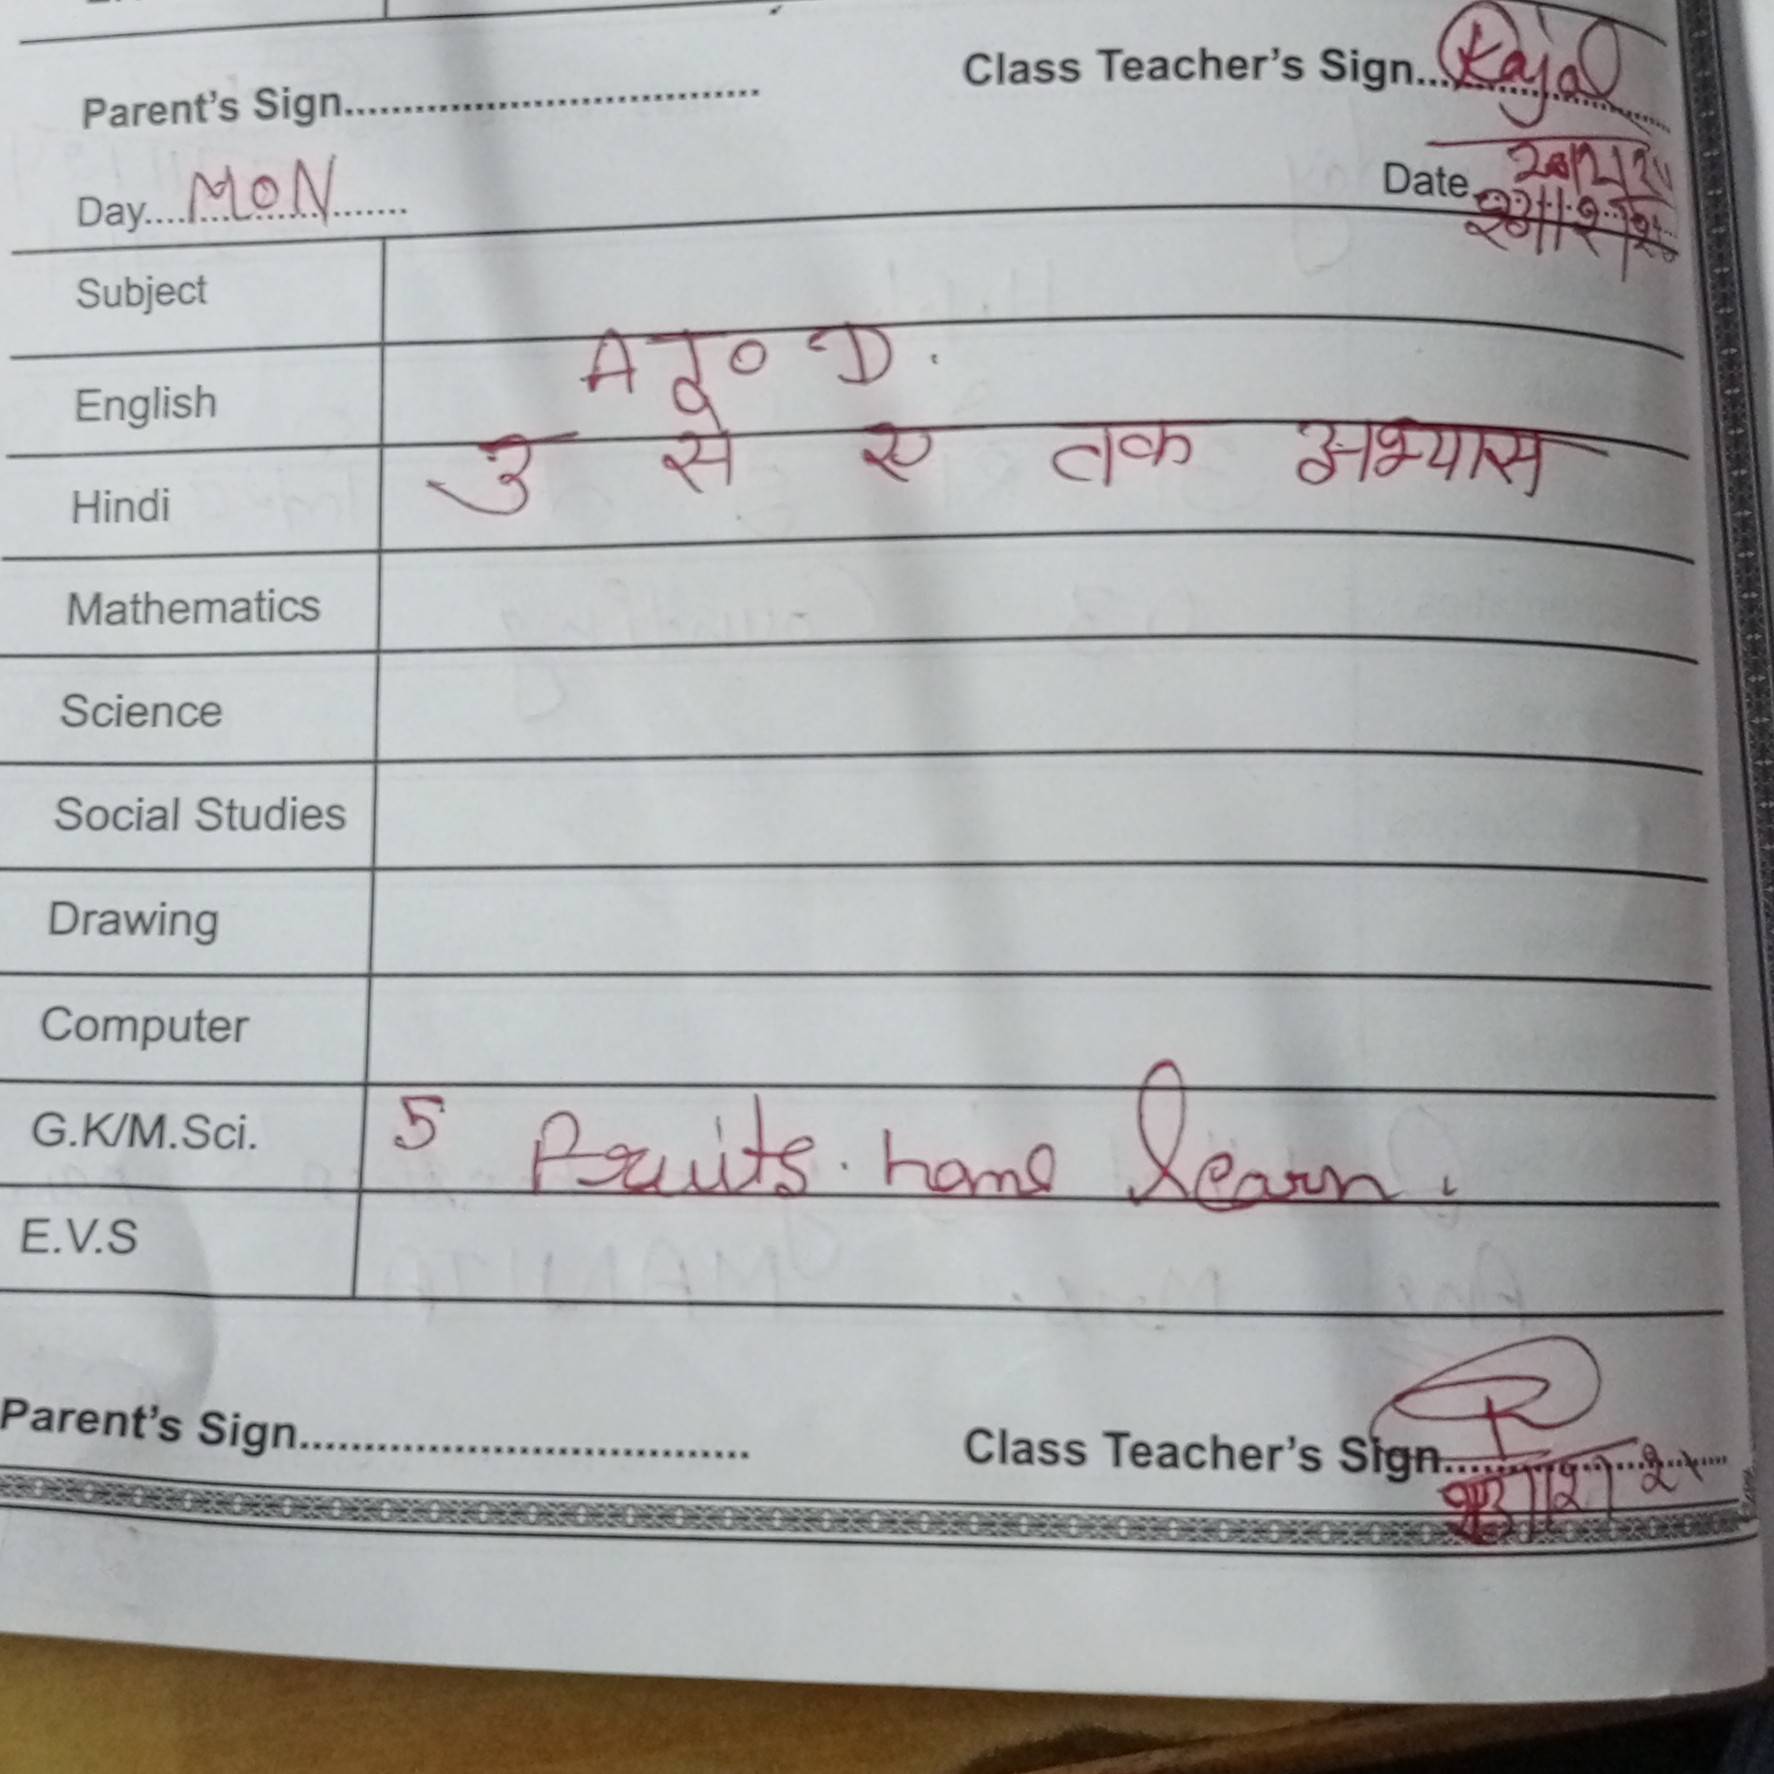 Parent's Sign........ Class Teacher's Sign... Rajal
Day.... MON Date
Subject
English A TO D.
Hindi उ से ए तक अभ्यास
Mathematics
Science
Social Studies
Drawing
Computer
G.K/M.Sci. 5 Fruits. name learn.
E.V.S
Parent's Sign........ Class Teacher's Sign........